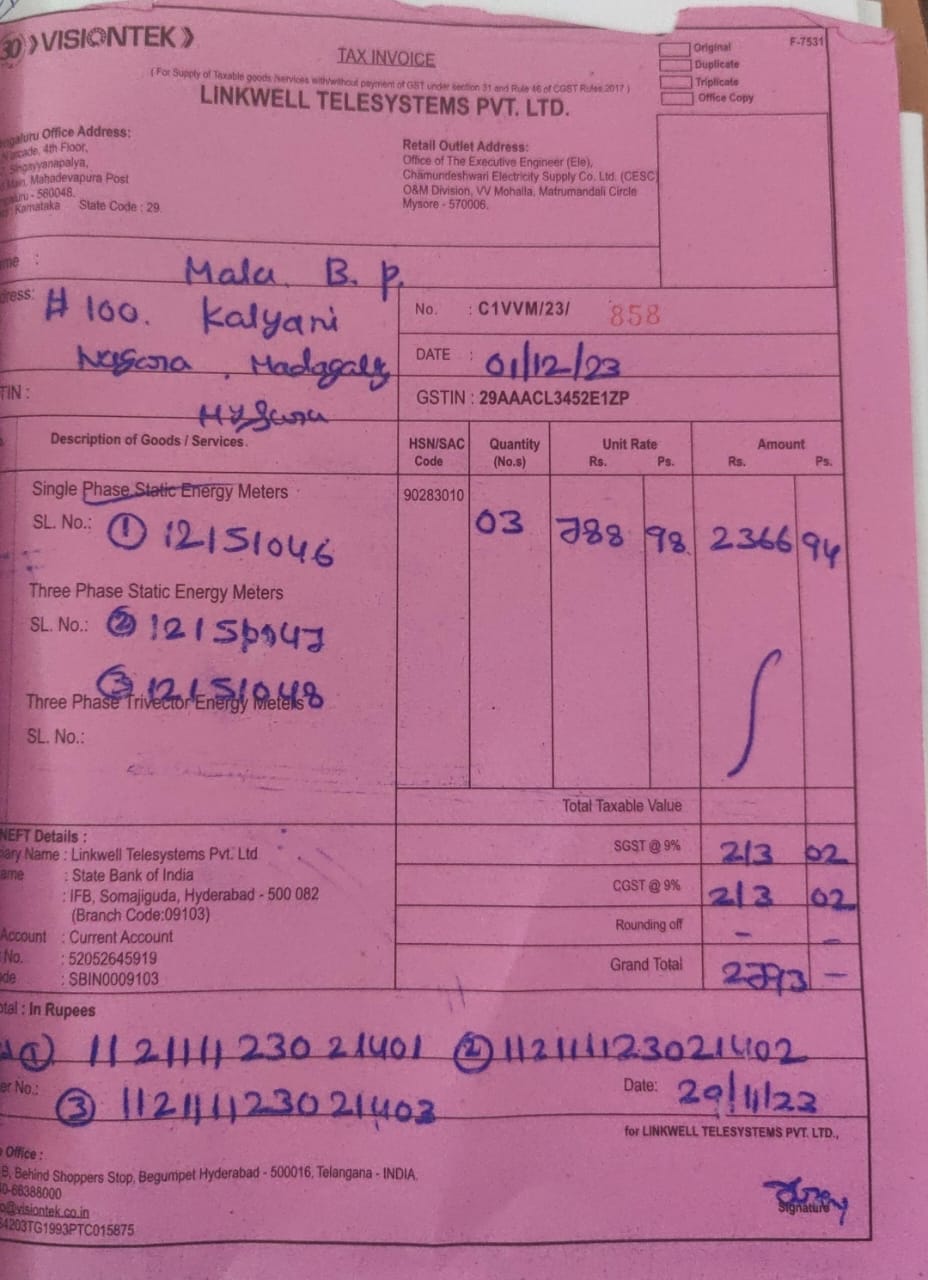 VISIONTEK
TAX INVOICE
(For Supply of Taxable goods /services with/without payment of GST under section 31 and Rule 46 of CGST Rules 2017)
LINKWELL TELESYSTEMS PVT. LTD.
Original
Duplicate
Triplicate
Office Copy
F-7531
Office Address:
4th Floor,
Singayyanapalya,
Main, Mahadevapura Post
- 560048.
Karnataka State Code : 29
Retail Outlet Address:
Office of The Executive Engineer (Ele),
Chamundeshwari Electricity Supply Co. Ltd. (CESC)
O&M Division, VV Mohalla, Matrumandali Circle
Mysore - 570006.
: Mala B. P.
# 100. Kalyani
Nagara, Madagally
Mysuru
No. : C1VVM/23/ 858
DATE : 01/12/23
GSTIN : 29AAACL3452E1ZP
Description of Goods / Services HSN/SAC Code Quantity (No.s) Unit Rate Rs. Ps. Amount Rs. Ps.
Single Phase Static Energy Meters 90283010
SL. No.: ① 12151046 03 788 98 2366 94
Three Phase Static Energy Meters
SL. No.: ② 12151047
③ 12151048
Three Phase Trivector Energy Meters
SL. No.:
Total Taxable Value
SGST @ 9% 213 02
CGST @ 9% 213 02
Rounding off - -
Grand Total 2793 -
NEFT Details :
Name : Linkwell Telesystems Pvt. Ltd
: State Bank of India
: IFB, Somajiguda, Hyderabad - 500 082
(Branch Code:09103)
Account : Current Account
No. : 52052645919
: SBIN0009103
: In Rupees
① 1121111123021401 ② 1121111123021402
No.: ③ 1121111123021403
Date: 29/11/23
for LINKWELL TELESYSTEMS PVT. LTD.,
Office :
B, Behind Shoppers Stop, Begumpet Hyderabad - 500016, Telangana - INDIA.
66388000
@visiontek.co.in
4203TG1993PTC015875
Signature